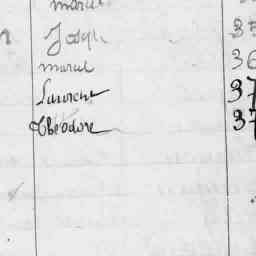 marcel
Joseph 35
marcel 36
Laurent 37
Théodore 37